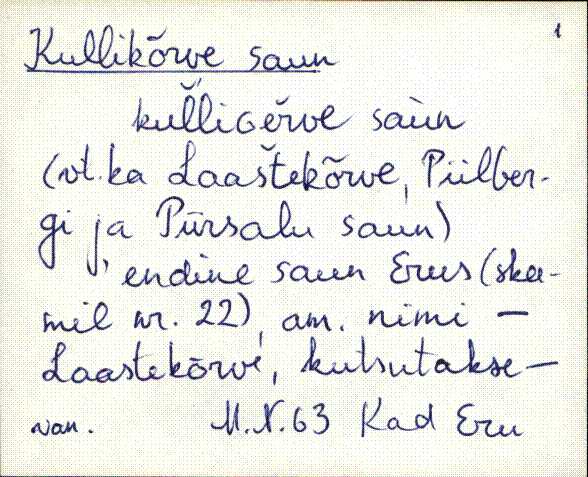 1
Kullikõrve saun
kulliGèrve saùn
(vt. ka Laaštekõrve, Piilber-
gi ja Pürsalu saun)
endine saun Erus (ska-
mil nr. 22), am. nimi –
Laastekõrve, kutsutakse –
van. M.N.63 Kad Eru